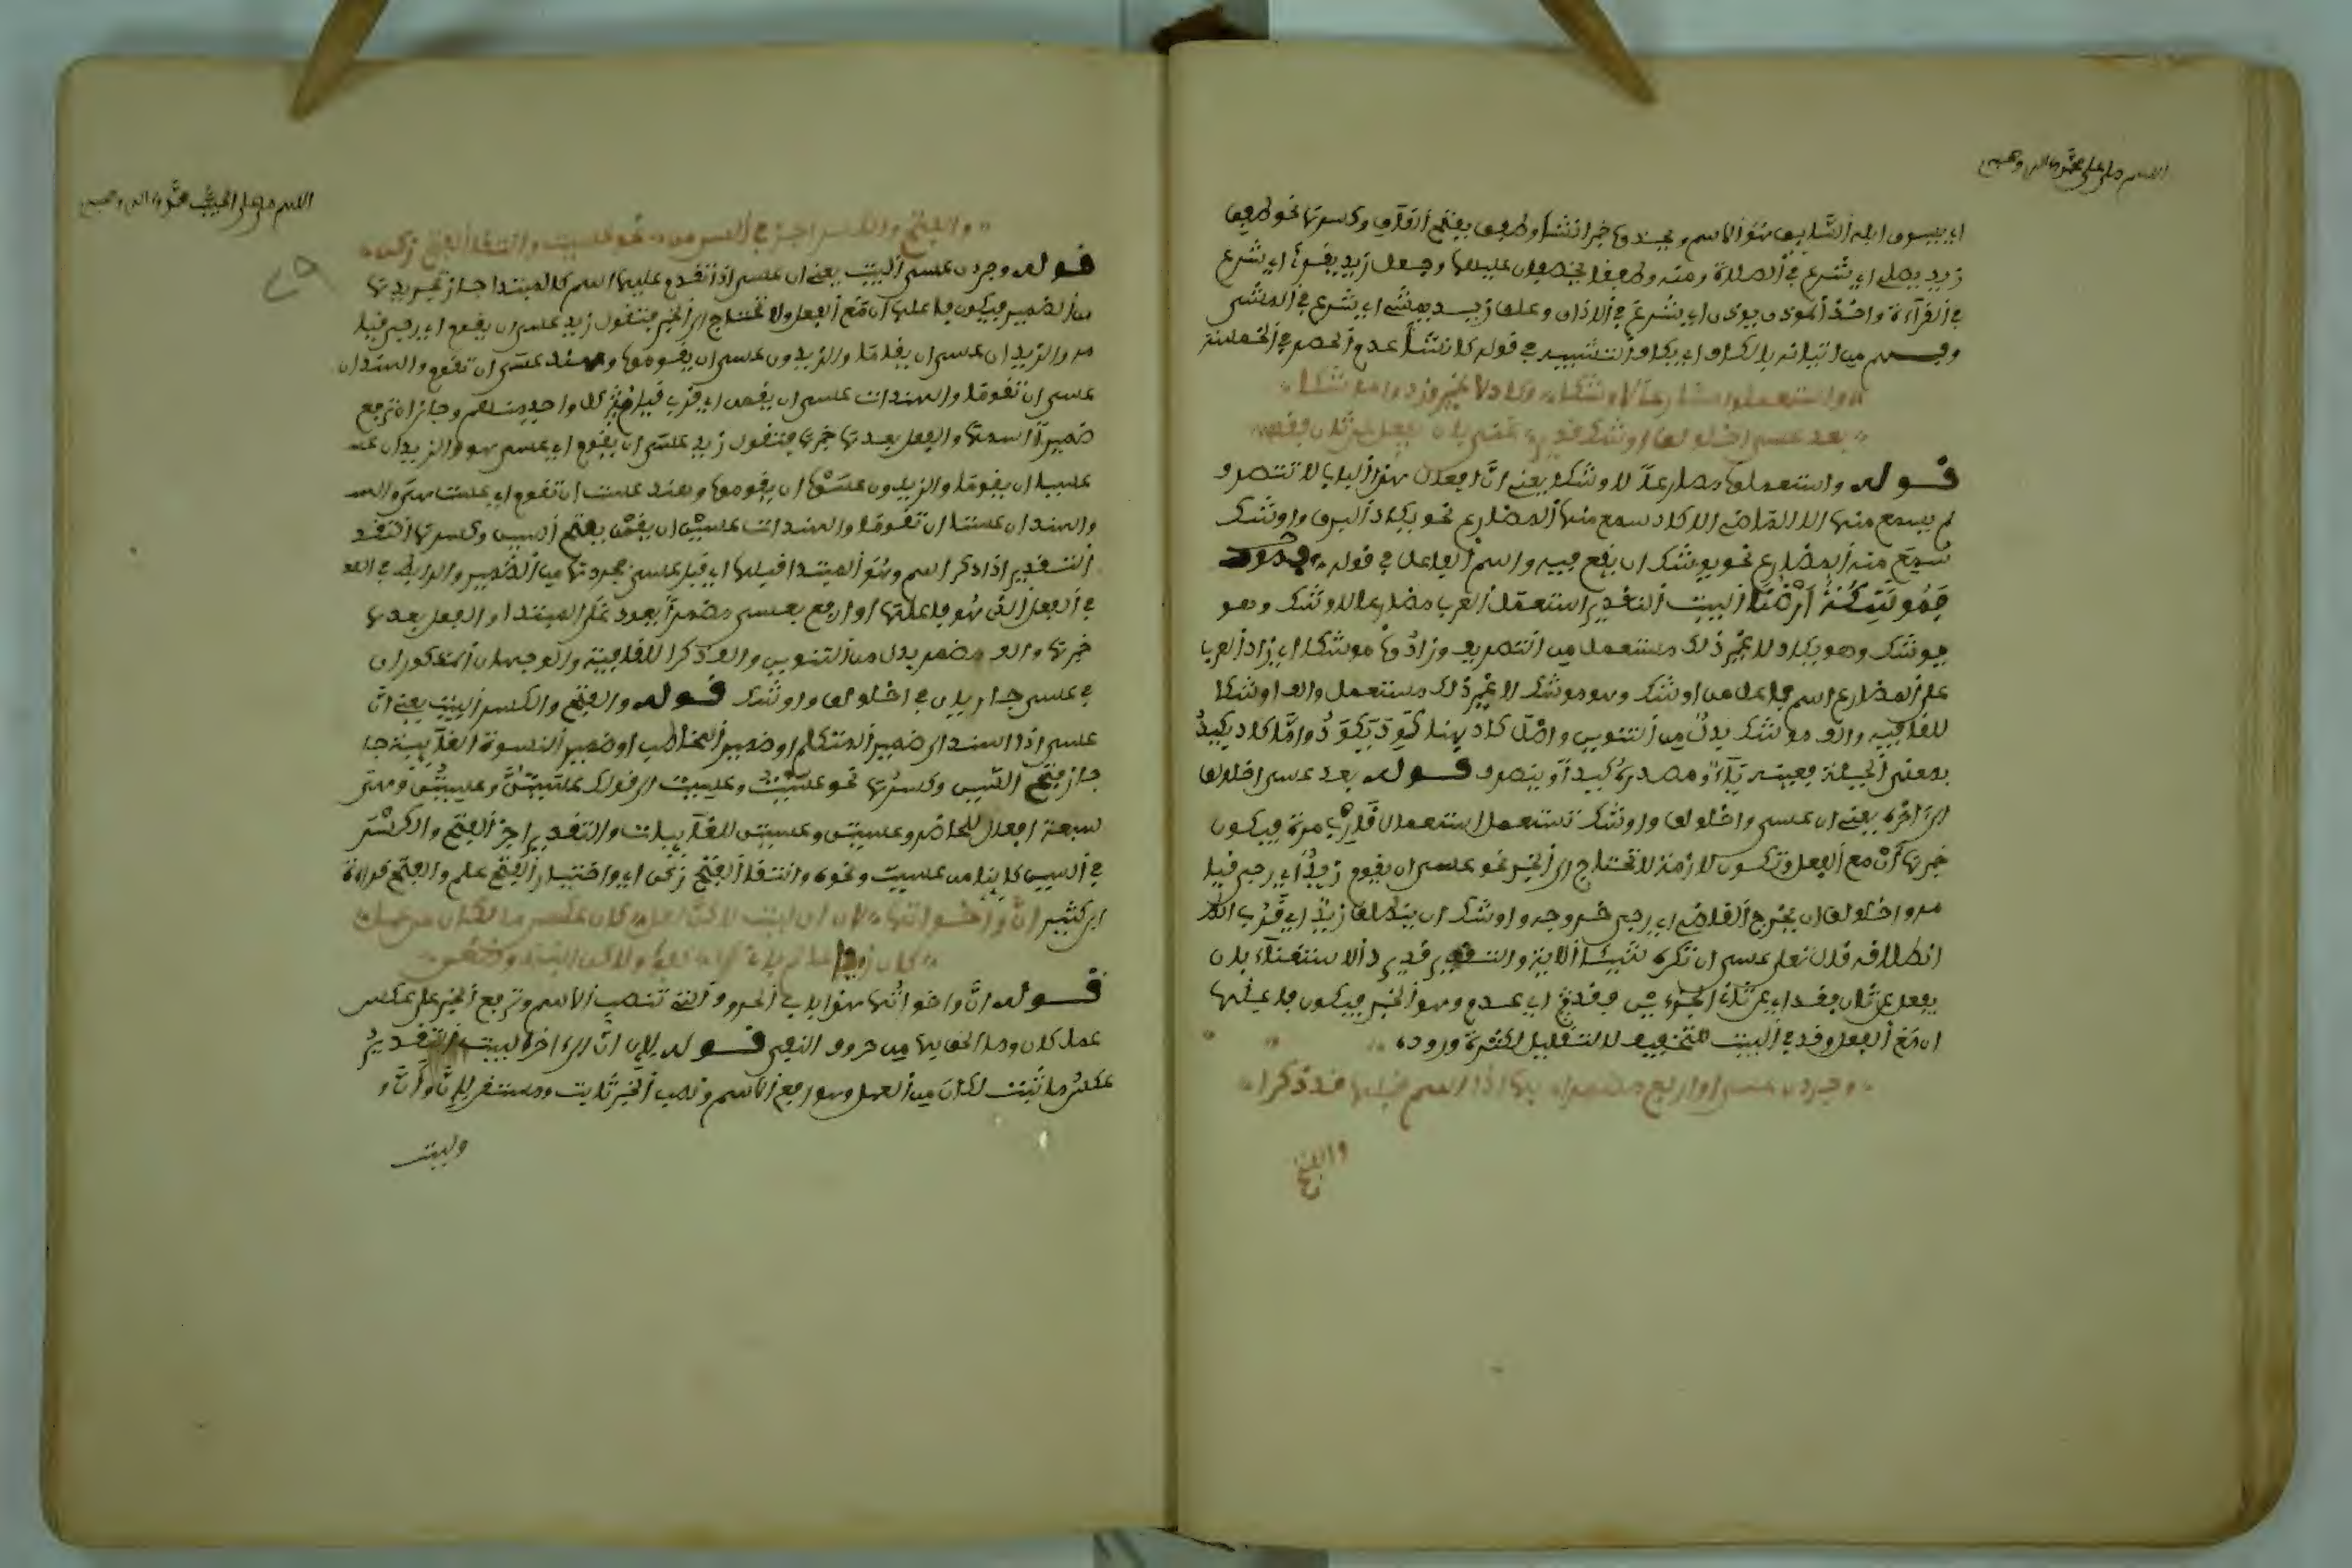 اللهم صل على محمد وآله وصحبه
زيد يصلي أي شرع في الصلاة ومنه وطفقا يخصفان عليهما وجعل زيد يقرأ أي شرع
في القراءة وأخذ المؤذن يؤذن أي شرع في الأذان وعلق زيد يمشي أي شرع في المشي
واستعملوا مضارعا لأوشكا وكاد لا غير وزادوا موشكا
بعد عسى اخلولق أوشك قد يرد غنى بأن يفعل عن ثان فقد
قوله واستعملوا مضارعا لأوشكا يعني أن أفعال هذا الباب لا تتصرف
لم يسمع منها إلا الماضي إلا كاد سمع منها المضارع نحو يكاد البرق وأوشك
سمع منه المضارع نحو يوشك أن يقع فيه واسم الفاعل في قوله
فموشكة أرضنا البيت التقدير استعمل العرب مضارعا لأوشك وهو
يوشك وهو يكاد لا غير ذلك مستعمل من التصريف وزادوا موشكا أي زاد العرب
على المضارع اسم فاعل من أوشك وهو موشك لا غير ذلك مستعمل وألف أوشكا
للقافية وألف موشك بدل من التنوين وأصل كاد هنا كود يكود وأما كاد يكيد
بمعنى الحيلة فعينه ياء ومصدره كيدا ويتصرف قوله بعد عسى اخلولق
إلى آخره يعني أن عسى واخلولق وأوشك تستعمل استعمال قارب مرة فيكون
خبرها أن مع الفعل وتكون لازمة لا تحتاج إلى الخبر نحو عسى أن يقوم زيد أي رجي قيا
مه واخلولق أن يخرج القاضي أي رجي خروجه وأوشك أن ينطلق زيد أي قرب الا
انطلاقه قال تعالى عسى أن تكرهوا شيئا الآية والتقدير قد يرد الاستغناء بأن
يفعل عن ثان فقد أي عن ثان الجزءين فقد أي عدم وهو الخبر فيكون فاعلها
أن مع الفعل وقد في البيت للتحقيق لا للتقليل لكثرة وروده
وجردن عسى أو ارفع مضمرا بها إذا اسم قبلها قد ذكرا
والفتح
اللهم صل على الحبيب محمد وآله وصحبه
والفتح والكسر أجز في السين من نحو عسيت وانتقا الفتح زكن
قوله وجردن عسى البيت يعني أن عسى إذا تقدم عليها اسم كالمبتدا جاز تجريدها
من الضمير فيكون فاعلها أن مع الفعل ولا تحتاج إلى الخبر فتقول زيد عسى أن يقوم أي رجي قيا
مه والزيدان عسى أن يقاما والزيدون عسى أن يقوموا وهند عسى أن تقوم والهندان
عسى أن تقوما والهندات عسى أن يقمن أي قرب قيام كل واحد منهم وجاز أن ترفع
ضميرا اسمها والفعل بعدها خبرها فتقول زيد عسى أن يقوم أي عسى هو والزيدان عسـ
عسيا أن يقوما والزيدون عسوا أن يقوموا وهند عست أن تقوم أي عست هي والهـ
والهندان عستا أن تقوما والهندات عسين أن يقمن بفتح السين وكسرها التقد
التقدير إذا ذكر اسم وهو المبتدا قبلها أي قبل عسى فجردنها من الضمير والرابط في الفـ
في الفعل الذي هو فاعلها أو ارفع بعسى مضمرا يعود على المبتدا والفعل بعدها
خبرها وألف مضمر بدل من التنوين وألف ذكرا للقافية والوجهان المذكوران
في عسى جاريان في اخلولق وأوشك قوله والفتح والكسر البيت يعني أن
عسى إذا اسند إلى ضمير المتكلم أو ضمير المخاطب أو ضمير النسوة الغائبة جا
جاز فتح السين وكسرها نحو عسيت وعسيت إلى قولك عسيتن وعسيتن وهي
في السين كائنا من عسيت ونحوه وانتقا الفتح زكن أي واختيار الفتح علم والفتح قراءة
ابن كثير إن وأخواتها لإن أن ليت لكن لعل كأن عكس ما لكان من عمل
كإن زيدا عالم بأني كفؤ ولكن ابنه ذو ضغن
قوله إن وأخواتها هذا باب في الحروف التي تنصب الاسم وترفع الخبر على عكس
عمل كان وما ألحق بها من حروف النفي قوله لإن أن إلى آخره البيت التقدير
عكس ما ثبت لكان من العمل وهو رفع الاسم ونصب الخبر ثابت ومستقر لإن وأن و
وليت